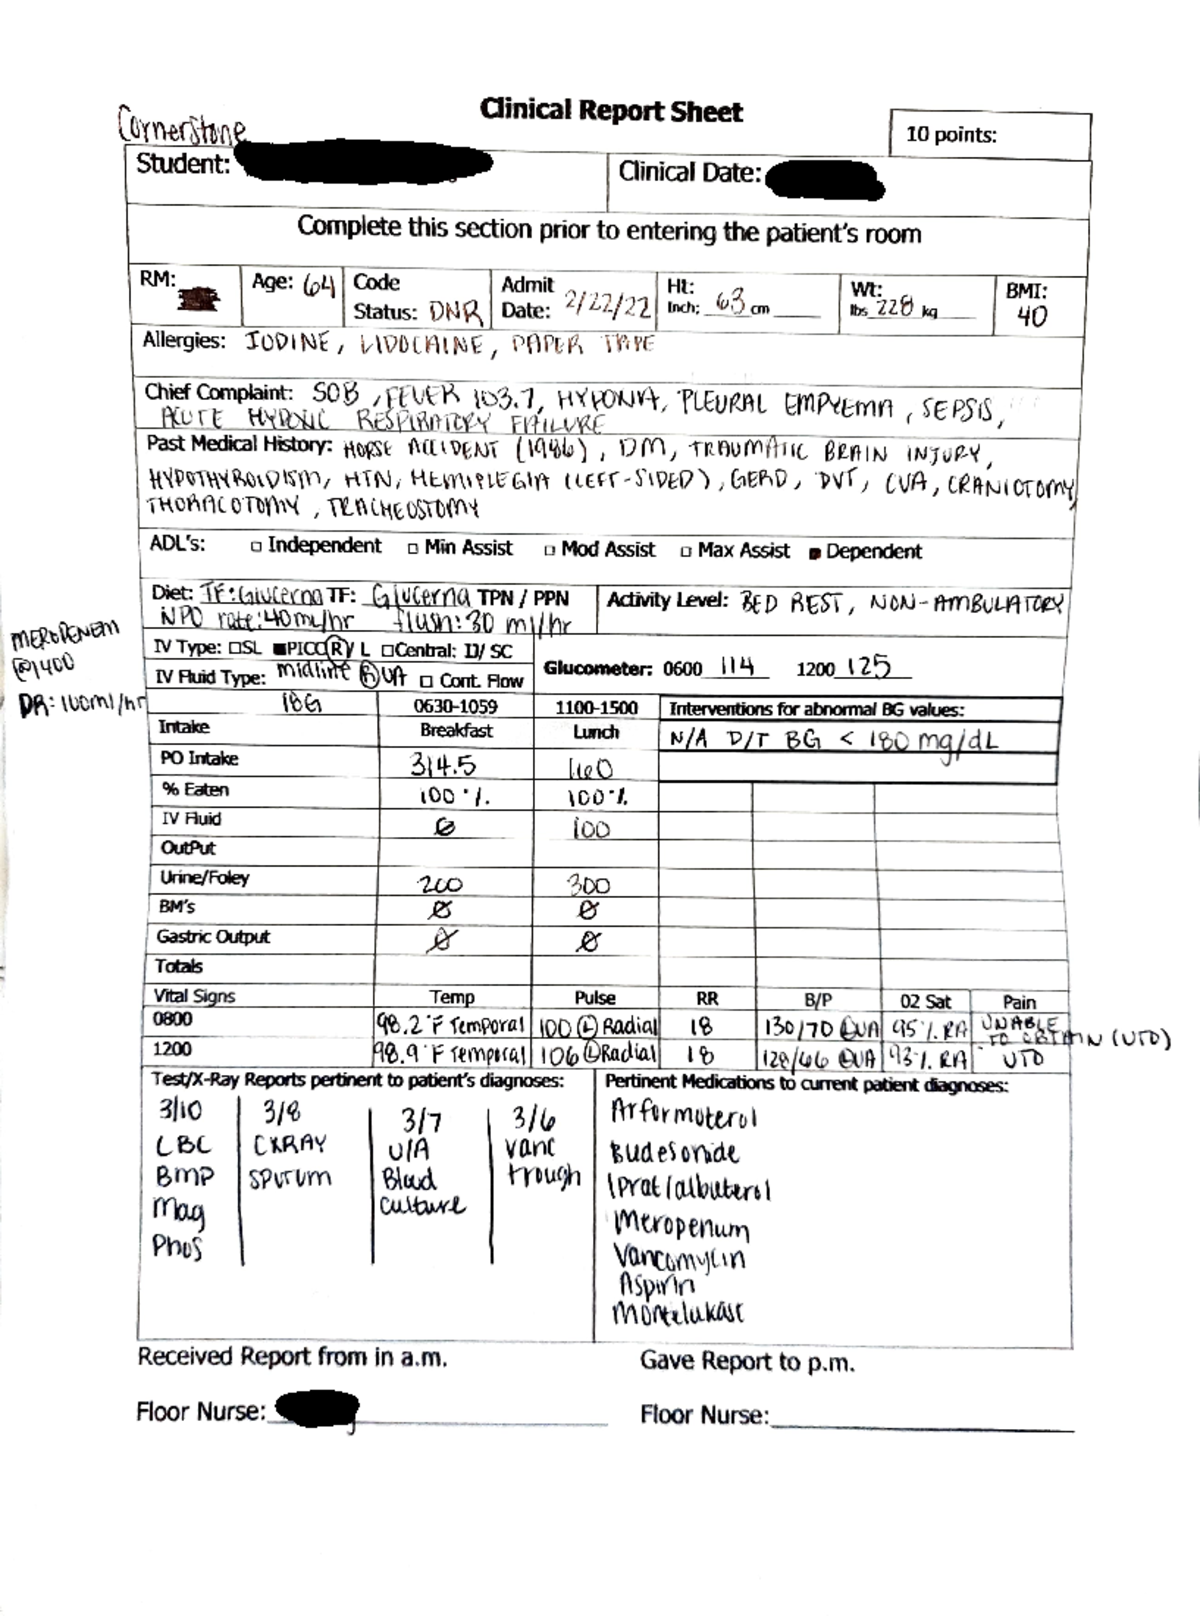 Clinical Report Sheet
Cornerstone
10 points:
Student:
Clinical Date:
Complete this section prior to entering the patient's room
RM: Age: 64 Code Status: DNR Admit Date: 2/22/22 Ht: Inch: 63 cm Wt: lbs 228 kg BMI: 40
Allergies: IODINE, LIDOCAINE, PAPER TAPE
Chief Complaint: SOB, FEVER 103.7, HYPONIA, PLEURAL EMPYEMA, SEPSIS,
ACUTE HYPOXIC RESPIRATORY FAILURE
Past Medical History: HORSE ACCIDENT (1986), DM, TRAUMATIC BRAIN INJURY,
HYPOTHYROIDISM, HTN, HEMIPLEGIA (LEFT-SIDED), GERD, DVT, CVA, CRANIOTOMY,
THORACOTOMY, TRACHEOSTOMY
ADL's: □ Independent □ Min Assist □ Mod Assist □ Max Assist ■ Dependent
Diet: TF: Glucerna TF: Glucerna TPN / PPN
NPO rate: 40 mL/hr flush: 30 ml/hr
Activity Level: BED REST, NON-AMBULATORY
MEROPENEM
@1400
DR: 100ml/hr
IV Type: □SL ■PICC R / L □Central: IJ/ SC
IV Fluid Type: midline R UA □ Cont. Flow
18G
Glucometer: 0600 114 1200 125
0630-1059 1100-1500 Interventions for abnormal BG values:
Intake Breakfast Lunch N/A D/T BG < 180 mg/dL
PO Intake 314.5 160
% Eaten 100% 100%
IV Fluid 0 100
OutPut
Urine/Foley 200 300
BM's Ø Ø
Gastric Output Ø Ø
Totals
Vital Signs Temp Pulse RR B/P 02 Sat Pain
0800 98.2°F Temporal 100 Ⓛ Radial 18 130/70 ⓁUA 95% RA UNABLE TO OBTAIN (UTO)
1200 98.9°F Temporal 106 Ⓛ Radial 18 128/66 ⓁUA 93% RA UTO
Test/X-Ray Reports pertinent to patient's diagnoses:
3/10 3/8 3/7 3/6
CBC CXRAY U/A vanc
BMP SPUTUM Blood trough
Mag culture
Phos
Pertinent Medications to current patient diagnoses:
Arformoterol
Budesonide
Iprat/albuterol
Meropenum
Vancomycin
Aspirin
Montelukast
Received Report from in a.m.
Gave Report to p.m.
Floor Nurse:
Floor Nurse: